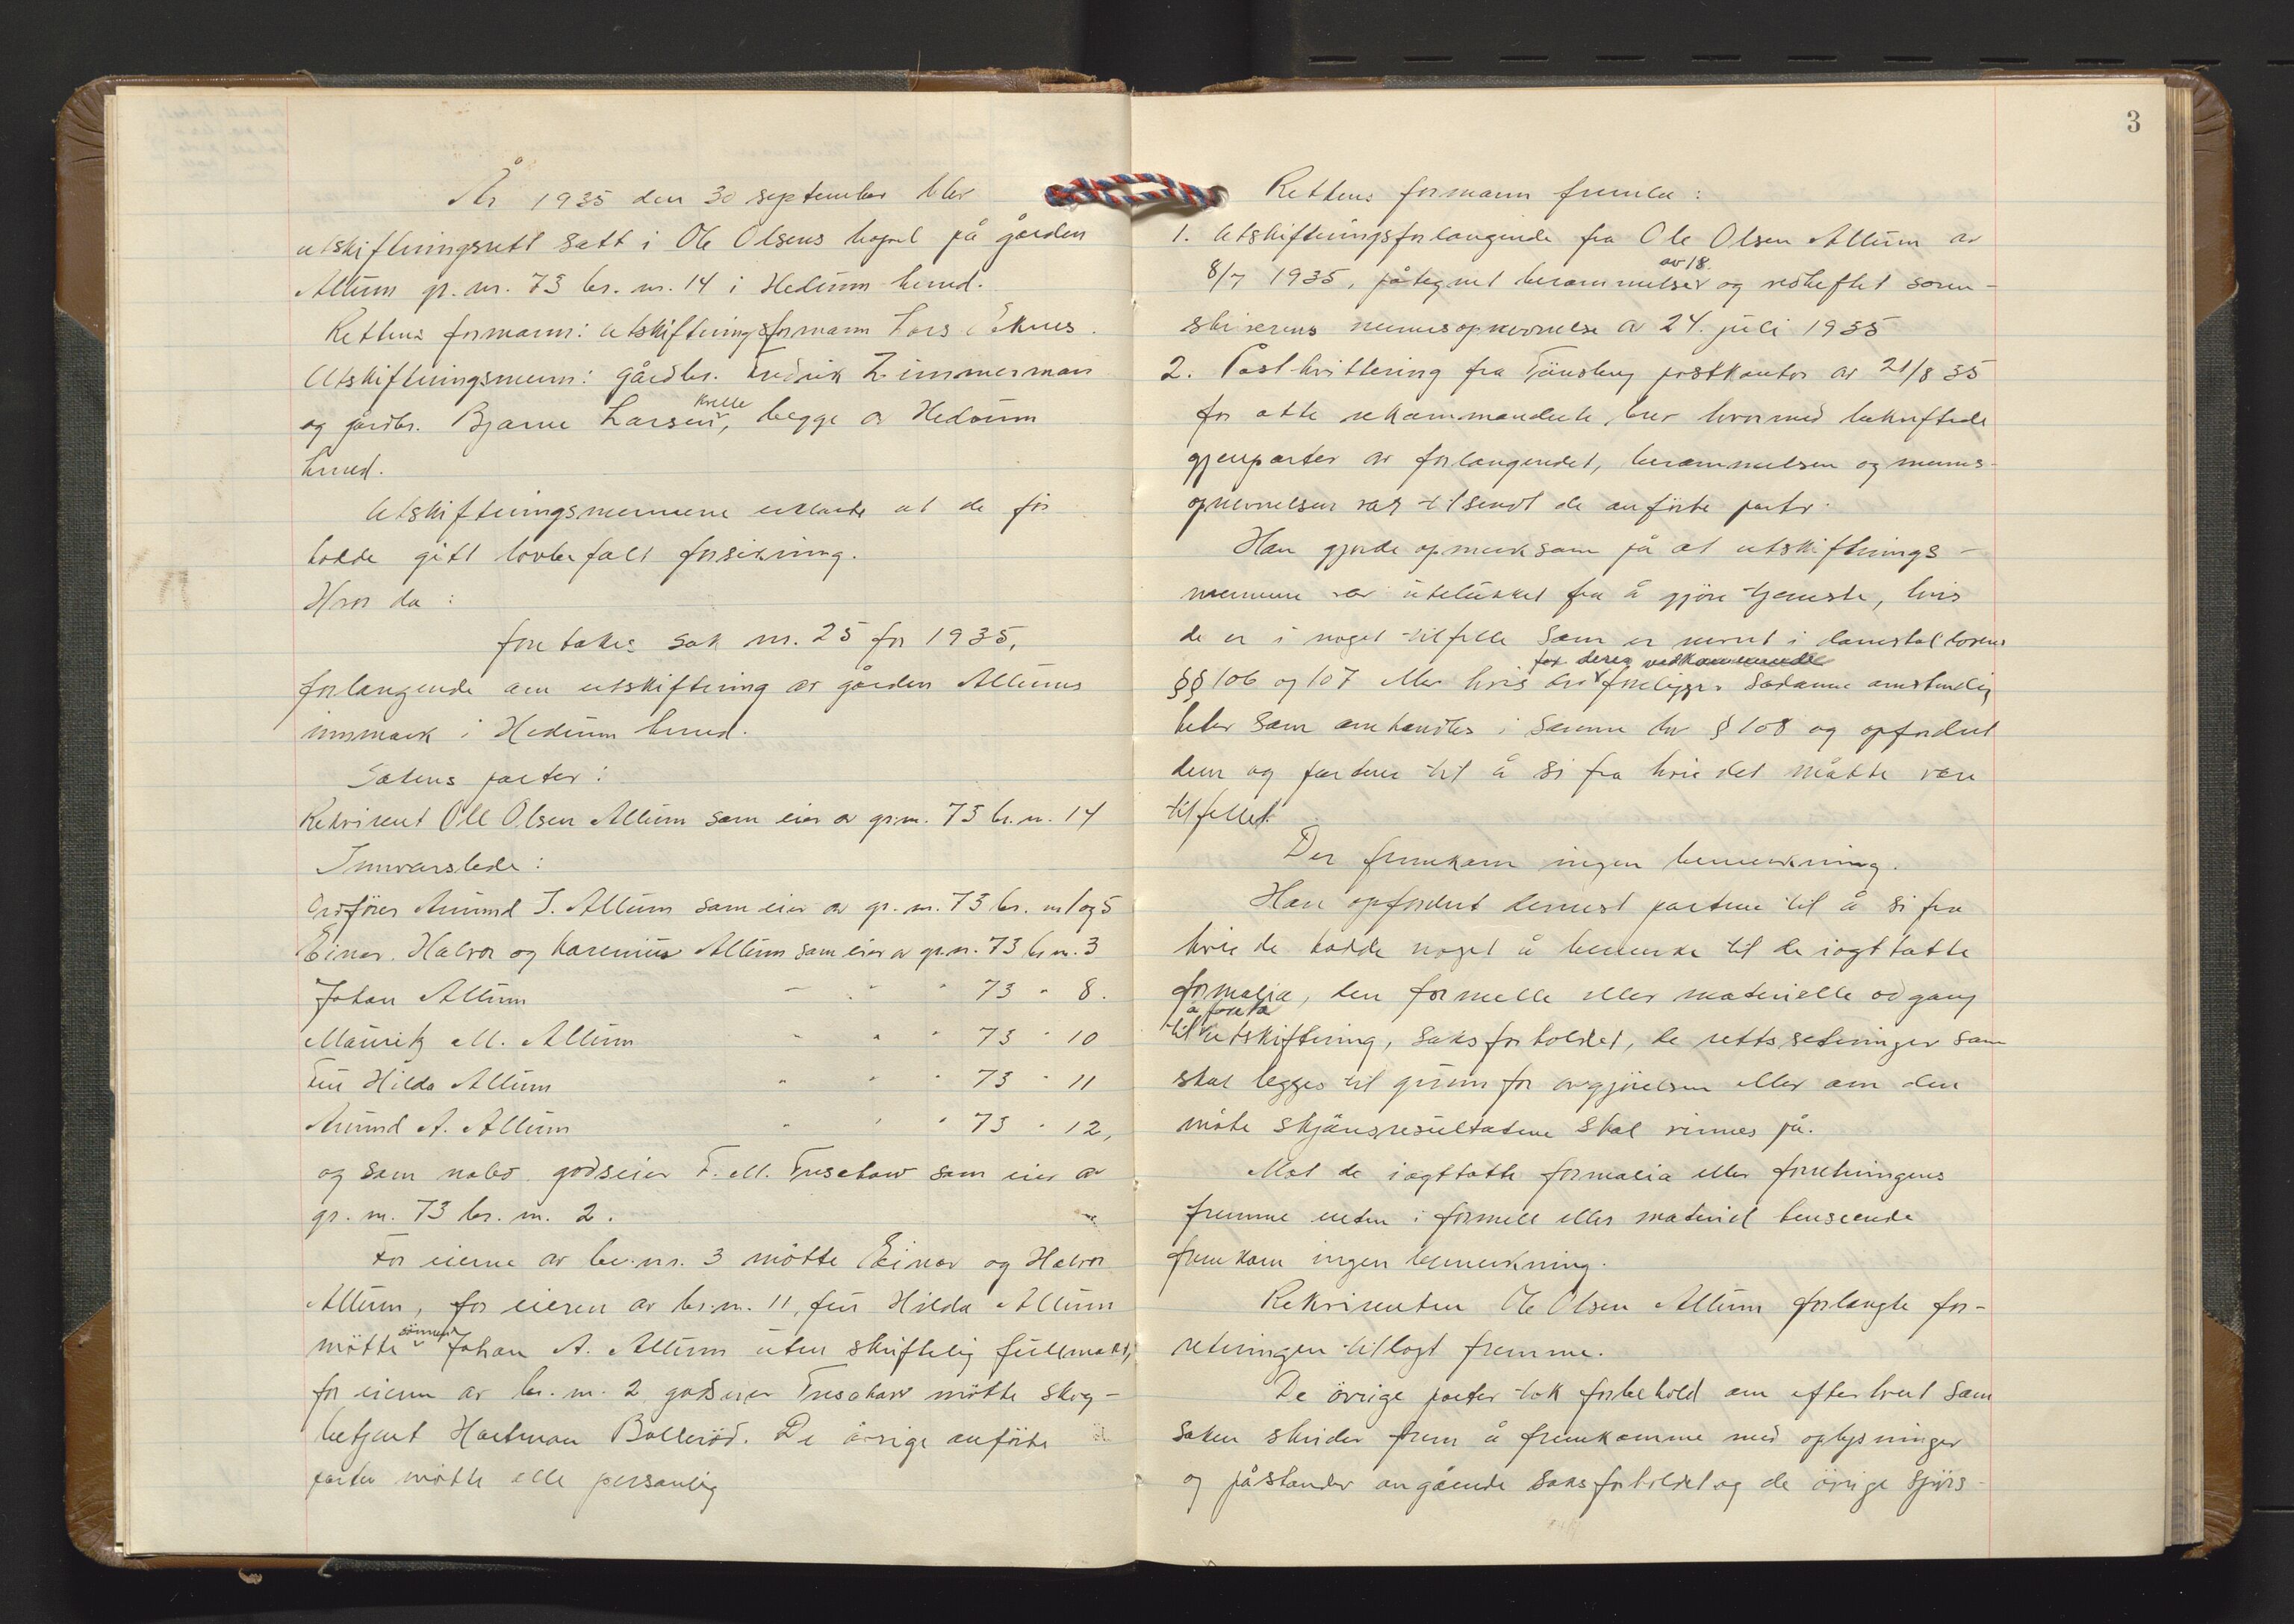 År 1935 den 30 september blev
utskiftningsrett satt i Ole Olsens bopel på gården
Allum gr. nr. 73 br. nr. 14 i Hedrum herred.
Rettens formann: utskiftningsformann Lars Eknes.
Utskiftningsmenn: gårdbr. Fredrik Zimmerman
og gårdbr. Bjarne Larsen Kvelle, begge av Hedrum
herred.
Utskiftningsmennene erklærte at de før
hadde gitt lovbefalt forsikring.
Hvor da:
foretakes sak nr. 25 for 1935,
forlangende om utskiftning av gården Allums
innmark i Hedrum herred.
Sakens parter:
Rekvirent Ole Olsen Allum som eier av gr.nr. 73 br. nr. 14
Innvarslede:
Ordfører Amund J. Allum som eier av gr. nr. 73 br. nr. 1 og 5
Einar, Halvor og Karenius Allum som eier av gr. nr. 73 br nr. 3
Johan Allum - " " 73 " 8.
Mauritz M. Allum " " " 73 " 10
Fru Hilda Allum " " " 73 " 11
Amund A. Allum " " " 73 " 12,
og som nabo godseier F. M. Treschow som eier av
gr. nr. 73 br. nr. 2.
For eierne av br. nr. 3 møtte Einar og Halvor
Allum, for eieren av br. nr. 11, fru Hilda Allum
møtte sønnen Johan A. Allum uten skriftelig fullmakt,
for eieren av br. nr. 2 godseier Treschow møtte skog-
betjent Hartman Bollerød. De øvrige anførte
parter møtte alle personlig
3
Rettens formann fremla:
1. Utskiftningsforlangende fra Ole Olsen Allum av
8/7 1935, påtegnet berammelser av 18. og vedheftet soren-
skriverens mennsopnevnelse av 24. juli 1935
2. Postkvittering fra Tønsberg postkontor av 21/8 35
for otte rekommanderte brev hvormed bekreftede
gjenparter av forlangendet, berammelsen og menns-
opnevnelsen var tilsendt de anførte parter.
Han gjorde opmerksom på at utskiftnings-
mennene var utelukket fra å gjøre tjeneste, hvis
de er i noget tilfelle som er nevnt i domstollovens
§§ 106 og 107 eller hvis der for deres vedkommende foreligger sådanne omstendig
heter som omhandles i samme lov § 108 og opfordret
dem og partene til å si fra hvis det måtte være
tilfellet.
Der fremkom ingen bemerkning.
Han opfordret dernest partene til å si fra
hvis de hadde noget å bemerke til de iagttatte
formalia, den formelle eller materielle adgang
til å foreta utskiftning, saksforholdet, de rettssetninger som
skal legges til grunn for avgjørelsen eller om den
måte skjønsresultatene skal vinnes på.
Mot de iagttatte formalia eller forretningens
fremme enten i formell eller materiel henseende
fremkom ingen bemerkning.
Rekvirenten Ole Olsen Allum forlangte for-
retningen tillagt fremme.
De øvrige parter tok forbehold om efterhvert som
saken skrider frem å fremkomme med oplysninger
og påstander angående saksforholdet og de øvrige spørs-